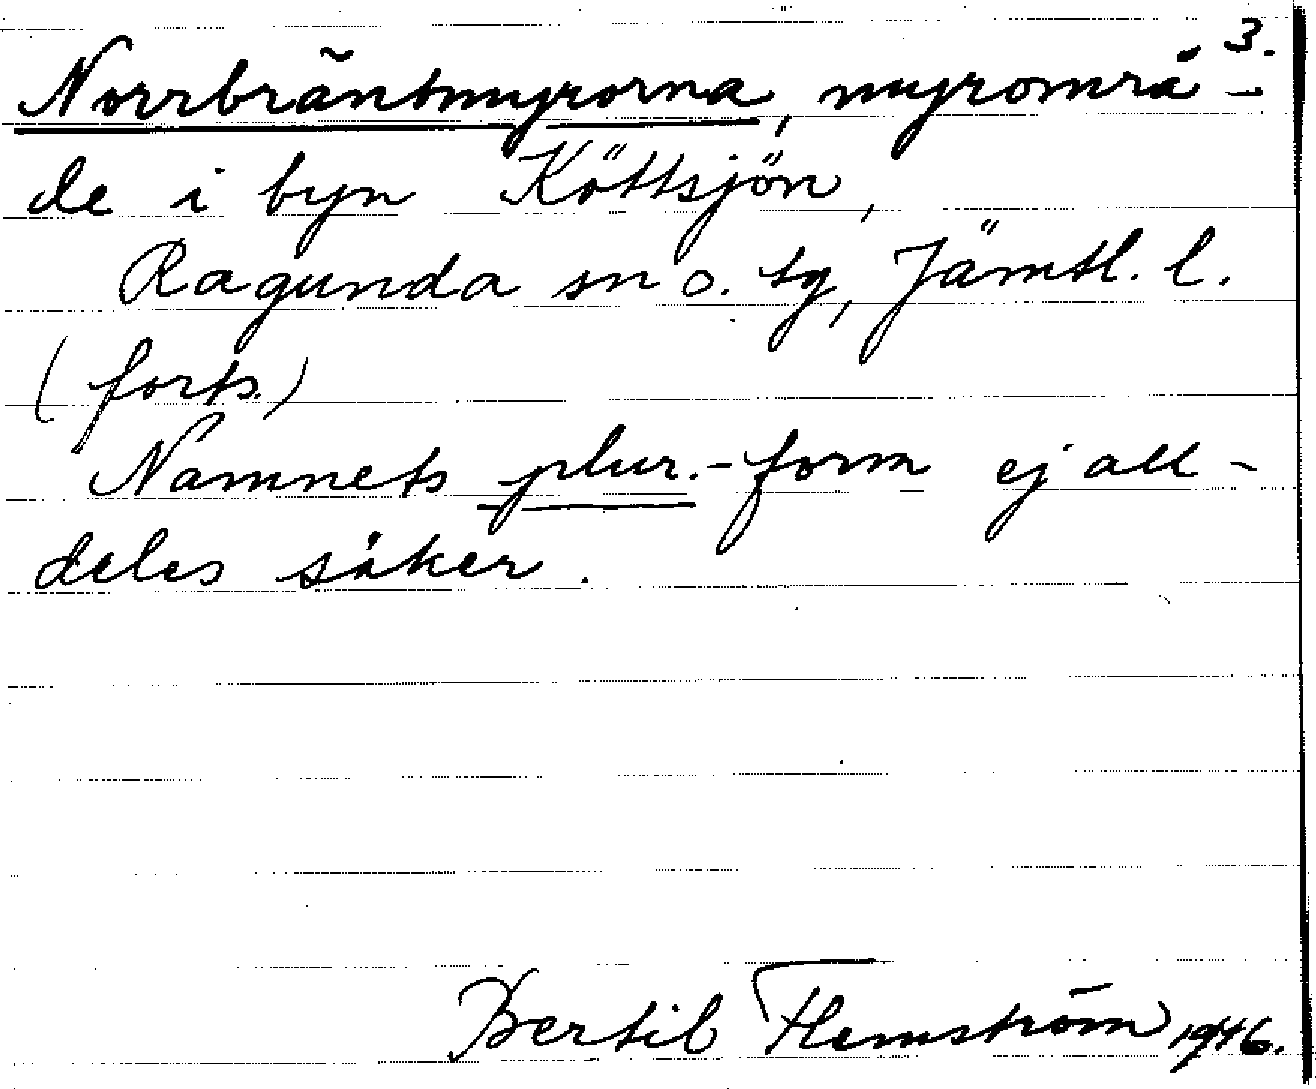 3.
Norrbräntmyrorna, myrområ-
de i byn Köttsjön,
Ragunda sn o. tg, Jämtl. l.
(forts.)
Namnets plur.-form ej all-
deles säker.
Bertil Flemström 1946.